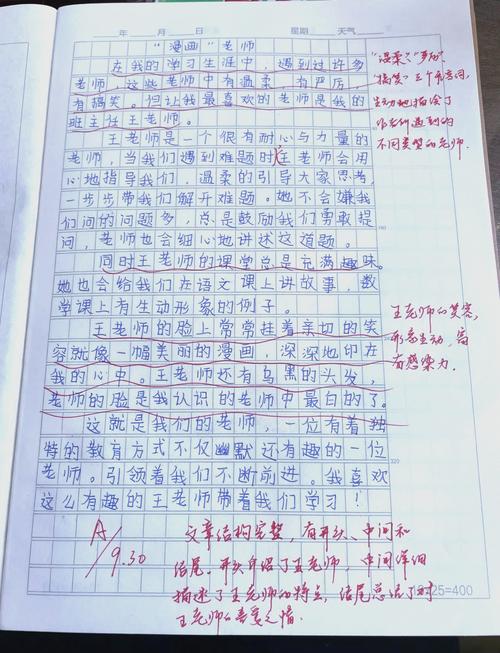 年 月 日 星期 天气
“漫画”老师
在我的学习生涯中，遇到过许多
老师，这些老师中有温柔、有严厉，
有搞笑。但让我最喜欢的老师是我的
班主任王老师。
王老师是一个很有耐心与力量的
老师，当我们遇到难题时，王老师会用
心地指导我们，温柔的引导大家思考，
一步步带我们解开难题。她不会嫌我
们问的问题多，总是鼓励我们勇敢提
问，老师也会细心地讲述这道题。
同时王老师的课堂总是充满趣味。
她也会给我们在语文课上讲故事，数
学课上有生动形象的例子。
王老师的脸上常常挂着亲切的笑
容就像一幅美丽的漫画，深深地印在
我的心中。王老师还有乌黑的头发，
老师的脸是我认识的老师中最白的了。
这就是我们的老师，一位有着独
特的教育方式不仅幽默还有趣的一位
老师。引领着我们不断前进。我喜欢
这么有趣的王老师带着我们学习！
320
25=400
“温柔”“严厉”
“搞笑”三个形容词，
生动地描绘了
不同类型的老师。
王老师的笑容，
形象生动，富
有感染力.
A
9.30
文章结构完整，有开头、中间和
结尾。开头介绍了王老师，中间详细
描述了王老师的特点，结尾总结了对
王老师的喜爱之情.